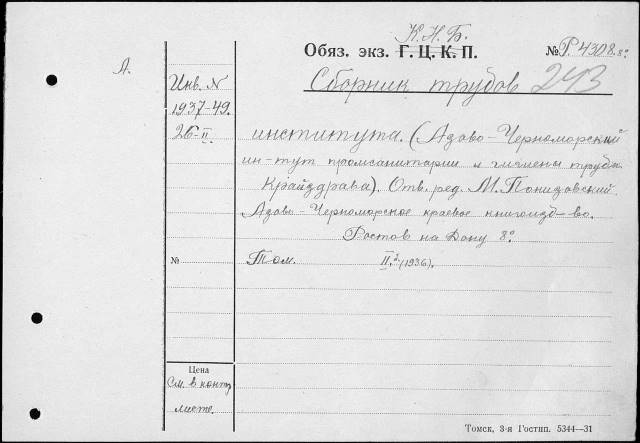 К.Н.Б.
Обяз. экз. Г. Ц. К. П. №Р. 4308. 8°
А.
Инв. N
1937-49.
26-II.
Сборник трудов 243
института. (Азово-Черноморский
ин-тут промсанитарии и гигиены труда
Крайздрава). Отв. ред. М. Понизовский.
Азово-Черноморское краевое книгоизд-во.
Ростов на Дону 8°.
№ Том. II.² (1936).
Цена
См. в конт.
листе.
Томск, 3-я Гостип. 5344—31